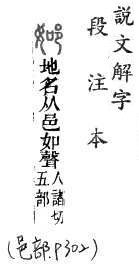 説文解字
段注本
𨚴
地名从邑如聲
人諸切
五部
(邑部.P302)